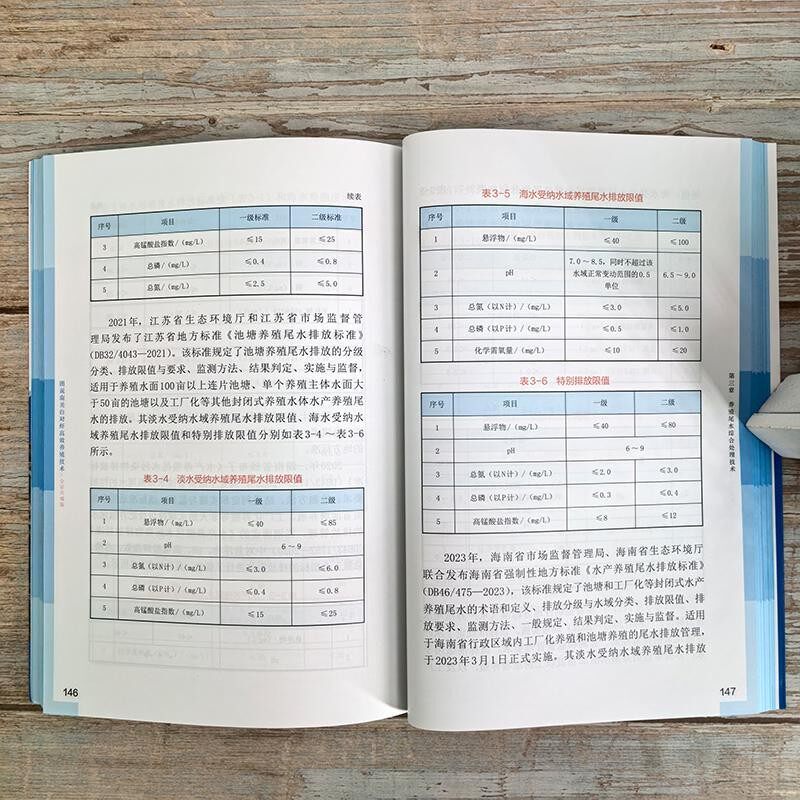 续表
序号 项目 一级标准 二级标准
3 高锰酸盐指数/(mg/L) ≤15 ≤25
4 总磷/(mg/L) ≤0.4 ≤0.8
5 总氮/(mg/L) ≤2.5 ≤5.0
2021年，江苏省生态环境厅和江苏省市场监督管
理局发布了江苏省地方标准《池塘养殖尾水排放标准》
(DB32/4043—2021)。该标准规定了池塘养殖尾水排放的分级
分类、排放限值与要求、监测方法、结果判定、实施与监督，
适用于养殖水面100亩以上连片池塘、单个养殖主体水面大
于50亩的池塘以及工厂化等其他封闭式养殖水体水产养殖尾
水的排放。其淡水受纳水域养殖尾水排放限值、海水受纳水
域养殖尾水排放限值和特别排放限值分别如表3-4～表3-6
所示。
表3-4 淡水受纳水域养殖尾水排放限值
序号 项目 一级 二级
1 悬浮物/(mg/L) ≤40 ≤85
2 pH 6～9
3 总氮(以N计)/(mg/L) ≤3.0 ≤6.0
4 总磷(以P计)/(mg/L) ≤0.4 ≤0.8
5 高锰酸盐指数/(mg/L) ≤15 ≤25
图说南美白对虾高效养殖技术
146
表3-5 海水受纳水域养殖尾水排放限值
序号 项目 一级 二级
1 悬浮物/(mg/L) ≤40 ≤100
2 pH 7.0～8.5，同时不超过该
水域正常变动范围的0.5
单位 6.5～9.0
3 总氮(以N计)/(mg/L) ≤3.0 ≤5.0
4 总磷(以P计)/(mg/L) ≤0.5 ≤1.0
5 化学需氧量/(mg/L) ≤10 ≤20
表3-6 特别排放限值
序号 项目 一级 二级
1 悬浮物/(mg/L) ≤40 ≤80
2 pH 6～9
3 总氮(以N计)/(mg/L) ≤2.0 ≤3.0
4 总磷(以P计)/(mg/L) ≤0.3 ≤0.4
5 高锰酸盐指数/(mg/L) ≤8 ≤12
2023年，海南省市场监督管理局、海南省生态环境厅
联合发布海南省强制性地方标准《水产养殖尾水排放标准》
(DB46/475—2023)，该标准规定了池塘和工厂化等封闭式水产
养殖尾水的术语和定义、排放分级与水域分类、排放限值、排
放要求、监测方法、一般规定、结果判定、实施与监督。适用
于海南省行政区域内工厂化养殖和池塘养殖的尾水排放管理，
于2023年3月1日正式实施。其淡水受纳水域养殖尾水排放
第三章 养殖尾水综合处理技术
147